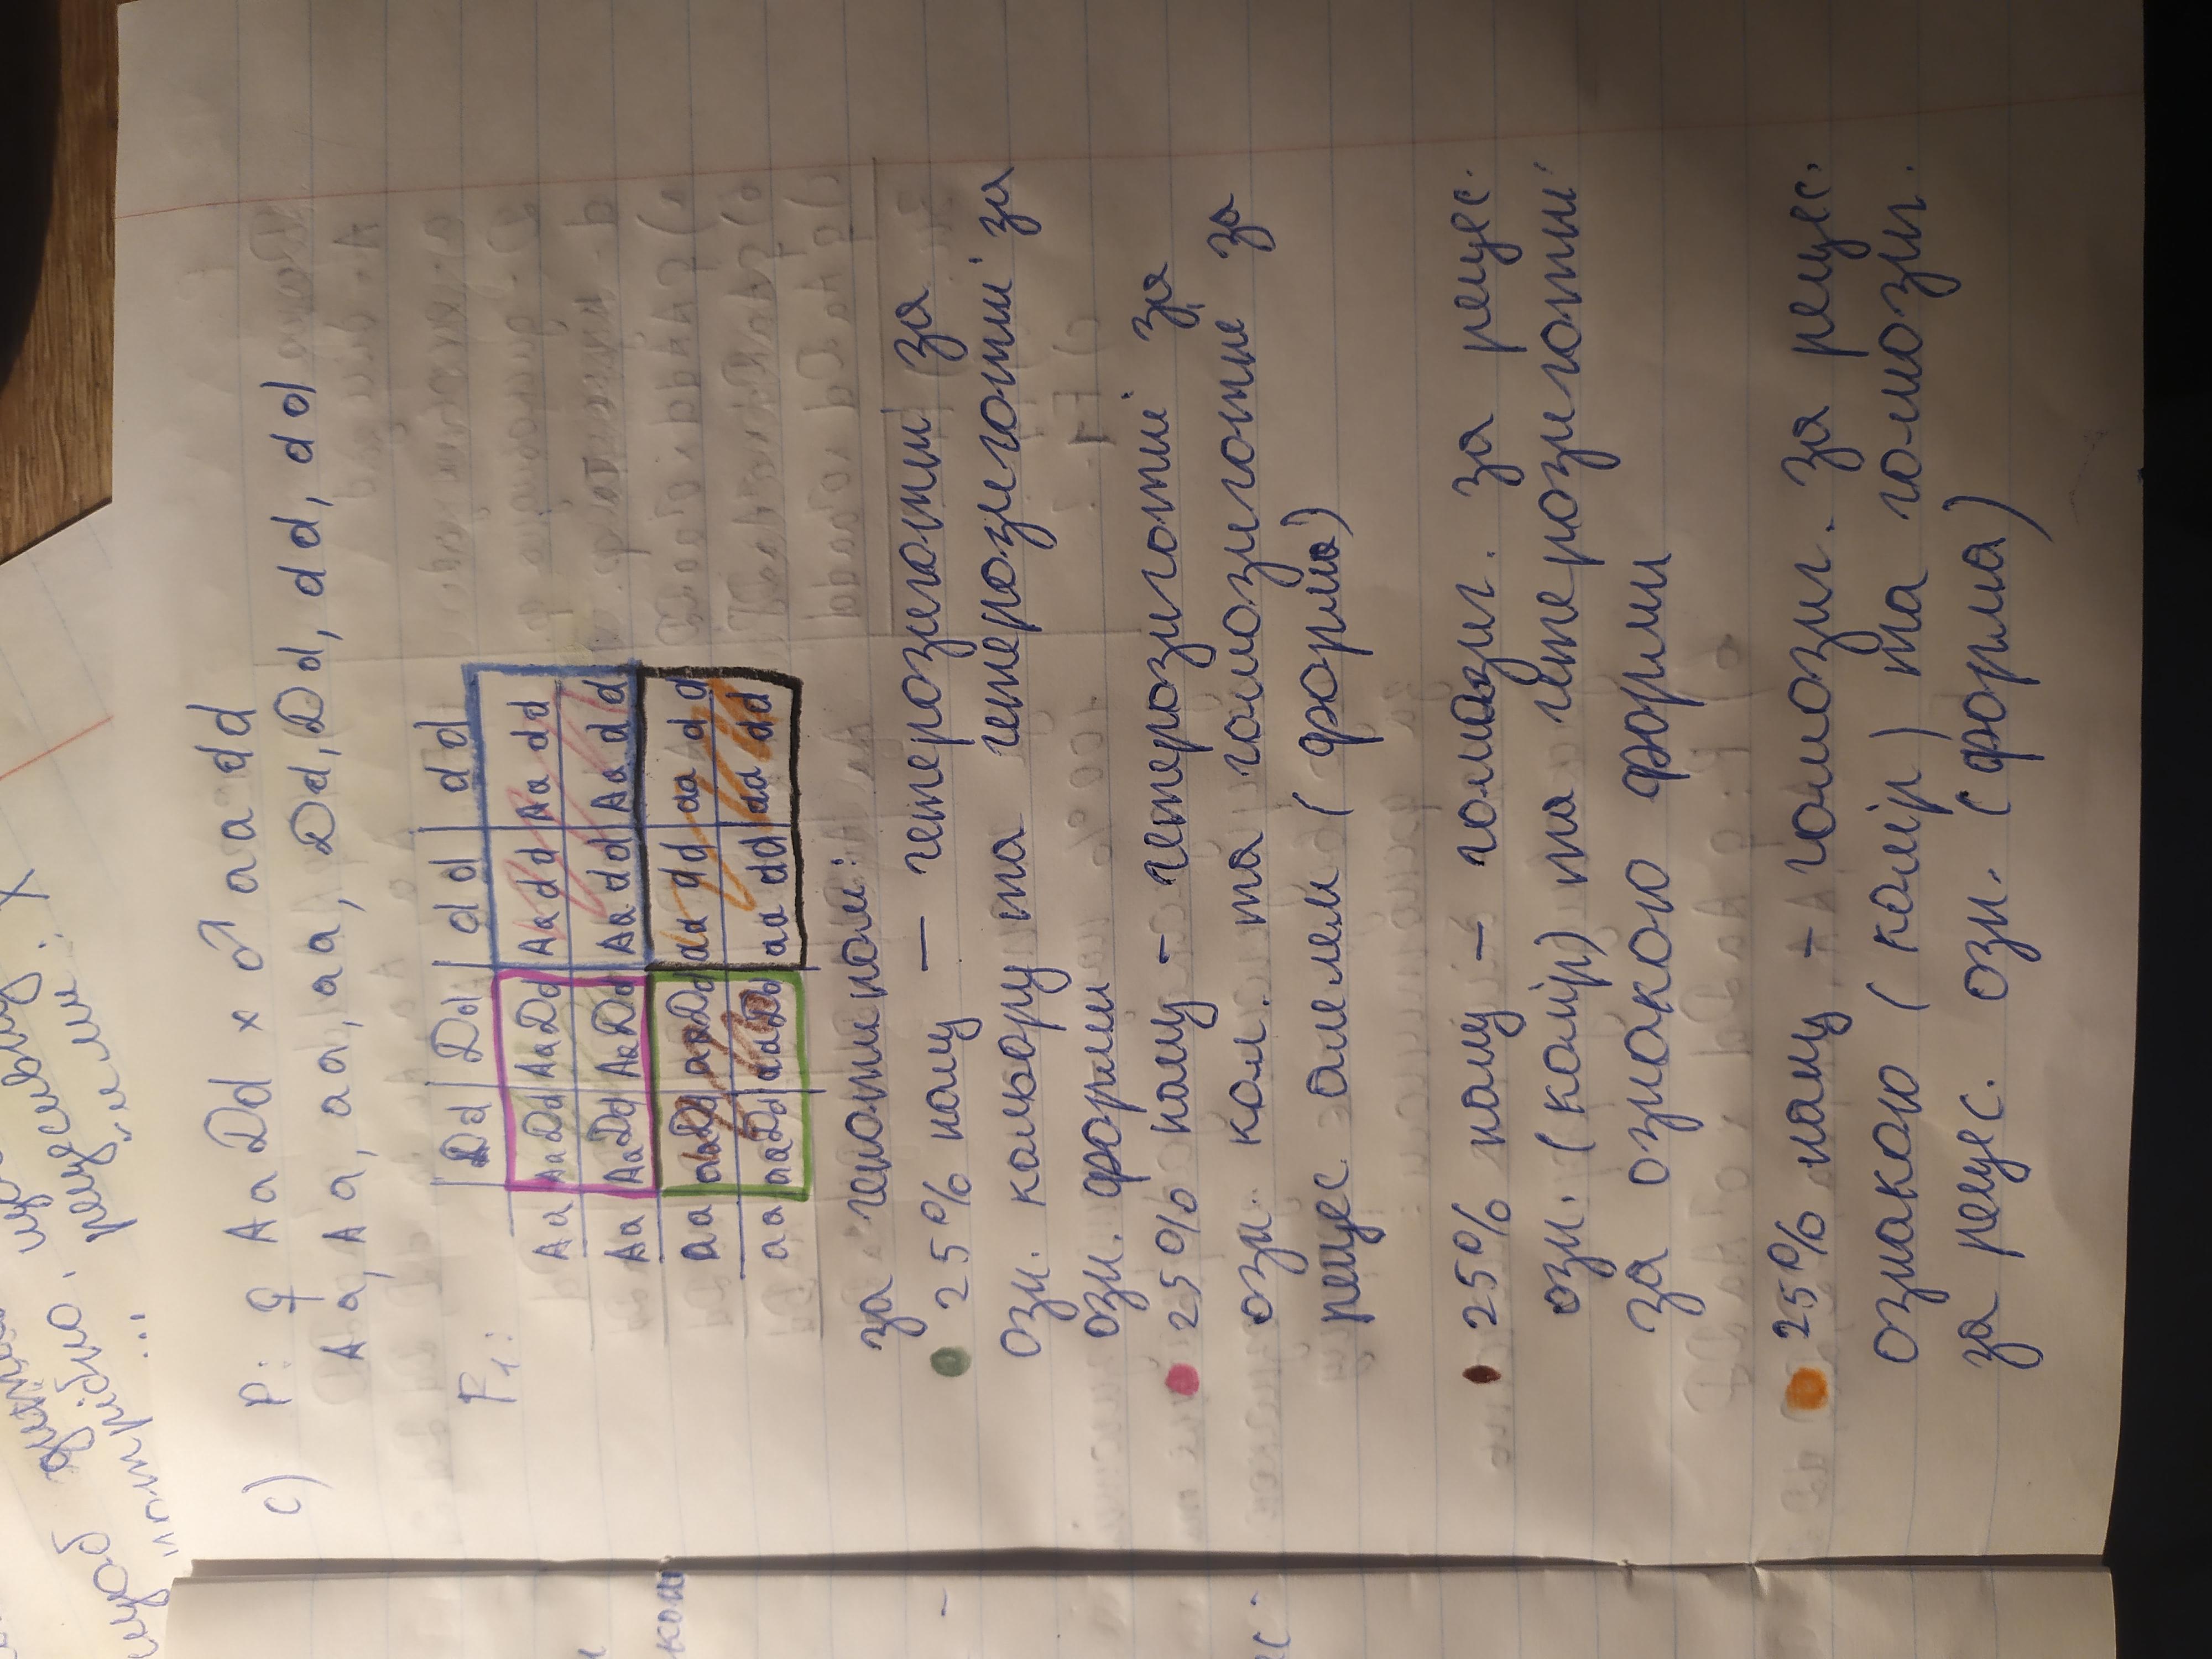 щоб
потрібно
c) P: ♀ AaDd × ♂ aadd
Aa, Aa, aa, aa, Dd, Dd, dd, dd
F1:
Dd | Dd | dd | dd
Aa AaDd AaDd Aadd Aadd
Aa AaDd AaDd Aadd Aadd
aa aaDd aaDd aadd aadd
aa aaDd aaDd aadd aadd
за генотипом:
25% нащ — гетерозиготни за
озн. кольору та гетерозиготні за
озн. форми
25% нащ – гетерозиготні за
озн. кол. та гомозиготне за
рецес. алелем (форма)
25% нащ – гомозиг. за рецес.
озн. (колір) та гетерозиготні
за ознакою форми
25% нащ – гомозиг. за рецес.
ознакою (колір) та гомозиг.
за рецес. озн. (форма)